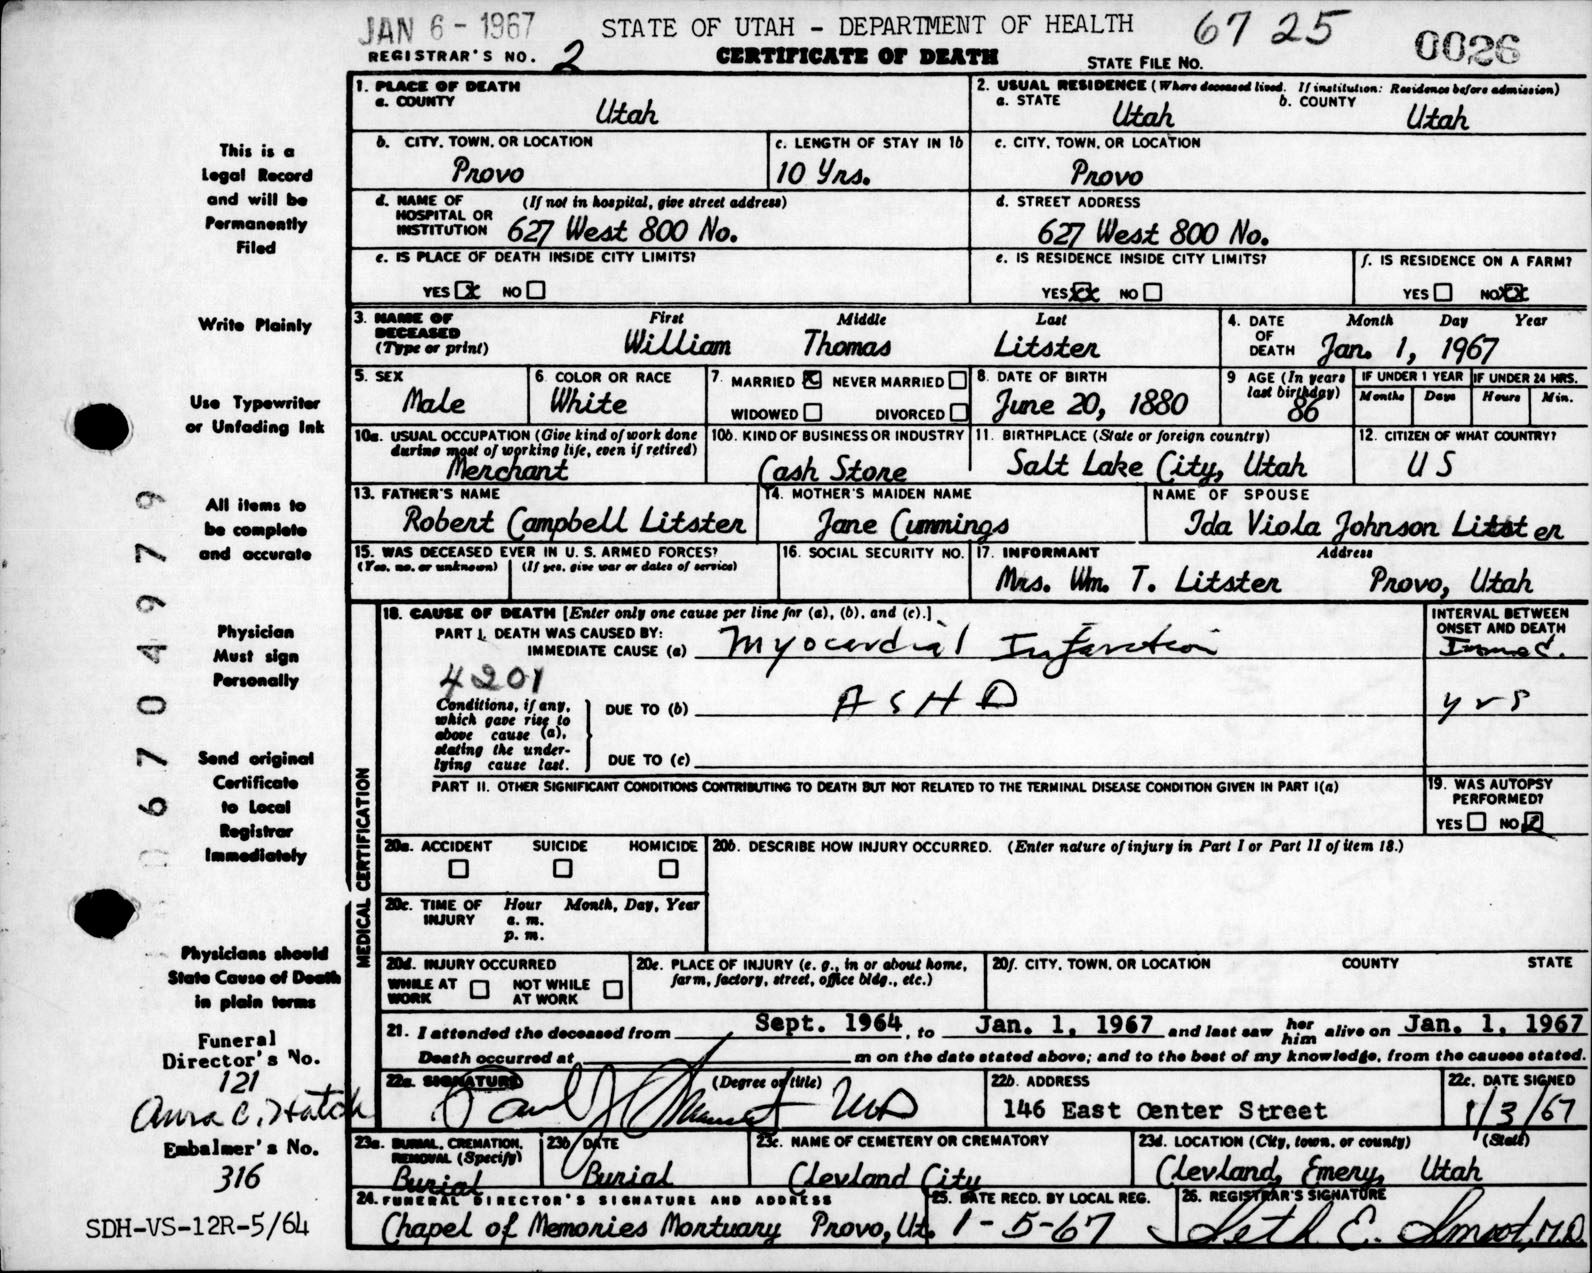 JAN 6 - 1967 STATE OF UTAH - DEPARTMENT OF HEALTH 67 25 0026
REGISTRAR'S NO. 2 CERTIFICATE OF DEATH STATE FILE NO.
1. PLACE OF DEATH
a. COUNTY Utah
2. USUAL RESIDENCE (Where deceased lived. If institution: Residence before admission)
a. STATE Utah b. COUNTY Utah
b. CITY, TOWN, OR LOCATION Provo
c. LENGTH OF STAY IN 1b 10 Yrs.
c. CITY, TOWN, OR LOCATION Provo
d. NAME OF HOSPITAL OR INSTITUTION (If not in hospital, give street address) 627 West 800 No.
d. STREET ADDRESS 627 West 800 No.
e. IS PLACE OF DEATH INSIDE CITY LIMITS?
YES X NO
e. IS RESIDENCE INSIDE CITY LIMITS?
YES XX NO
f. IS RESIDENCE ON A FARM?
YES NO XX
3. NAME OF DECEASED (Type or print) First Middle Last
William Thomas Litster
4. DATE OF DEATH Month Day Year
Jan. 1, 1967
5. SEX Male
6. COLOR OR RACE White
7. MARRIED X NEVER MARRIED
WIDOWED DIVORCED
8. DATE OF BIRTH June 20, 1880
9 AGE (In years last birthday) 86
IF UNDER 1 YEAR Months Days
IF UNDER 24 HRS. Hours Min.
10a. USUAL OCCUPATION (Give kind of work done during most of working life, even if retired)
Merchant
10b. KIND OF BUSINESS OR INDUSTRY
Cash Store
11. BIRTHPLACE (State or foreign country)
Salt Lake City, Utah
12. CITIZEN OF WHAT COUNTRY?
U S
13. FATHER'S NAME
Robert Campbell Litster
14. MOTHER'S MAIDEN NAME
Jane Cummings
NAME OF SPOUSE
Ida Viola Johnson Litster
15. WAS DECEASED EVER IN U. S. ARMED FORCES?
(Yes, no, or unknown) (If yes, give war or dates of service)
16. SOCIAL SECURITY NO.
17. INFORMANT Address
Mrs. Wm. T. Litster Provo, Utah
MEDICAL CERTIFICATION
18. CAUSE OF DEATH [Enter only one cause per line for (a), (b), and (c).]
PART I. DEATH WAS CAUSED BY:
IMMEDIATE CAUSE (a) Myocardial Infarction
INTERVAL BETWEEN ONSET AND DEATH
Immed.
4201
Conditions, if any, which gave rise to above cause (a), stating the underlying cause last.
DUE TO (b) ASHD yrs
DUE TO (c)
PART II. OTHER SIGNIFICANT CONDITIONS CONTRIBUTING TO DEATH BUT NOT RELATED TO THE TERMINAL DISEASE CONDITION GIVEN IN PART I(a)
19. WAS AUTOPSY PERFORMED?
YES NO
20a. ACCIDENT SUICIDE HOMICIDE
20b. DESCRIBE HOW INJURY OCCURRED. (Enter nature of injury in Part I or Part II of item 18.)
20c. TIME OF INJURY Hour Month, Day, Year
a. m.
p. m.
20d. INJURY OCCURRED
WHILE AT WORK NOT WHILE AT WORK
20e. PLACE OF INJURY (e. g., in or about home, farm, factory, street, office bldg., etc.)
20f. CITY, TOWN, OR LOCATION COUNTY STATE
21. I attended the deceased from Sept. 1964, to Jan. 1, 1967 and last saw her him alive on Jan. 1, 1967
Death occurred at m on the date stated above; and to the best of my knowledge, from the causes stated.
22a. SIGNATURE (Degree or title)
Paul MD
22b. ADDRESS
146 East Center Street
22c. DATE SIGNED
1/3/67
23a. BURIAL, CREMATION, REMOVAL (Specify)
Burial
23b DATE
Burial
23c. NAME OF CEMETERY OR CREMATORY
Clevland City
23d. LOCATION (City, town, or county) (State)
Clevland, Emery, Utah
24. FUNERAL DIRECTOR'S SIGNATURE AND ADDRESS
Chapel of Memories Mortuary Provo, Ut.
25. DATE RECD. BY LOCAL REG.
1-5-67
26. REGISTRAR'S SIGNATURE
Seth E. Smoot, M.D.
This is a
Legal Record
and will be
Permanently
Filed
Write Plainly
Use Typewriter
or Unfading Ink
All items to
be complete
and accurate
Physician
Must sign
Personally
Send original
Certificate
to Local
Registrar
Immediately
Physicians should
State Cause of Death
in plain terms
Funeral
Director's No.
121
Anna C. Hatch
Embalmer's No.
316
SDH-VS-12R-5/64
06704979